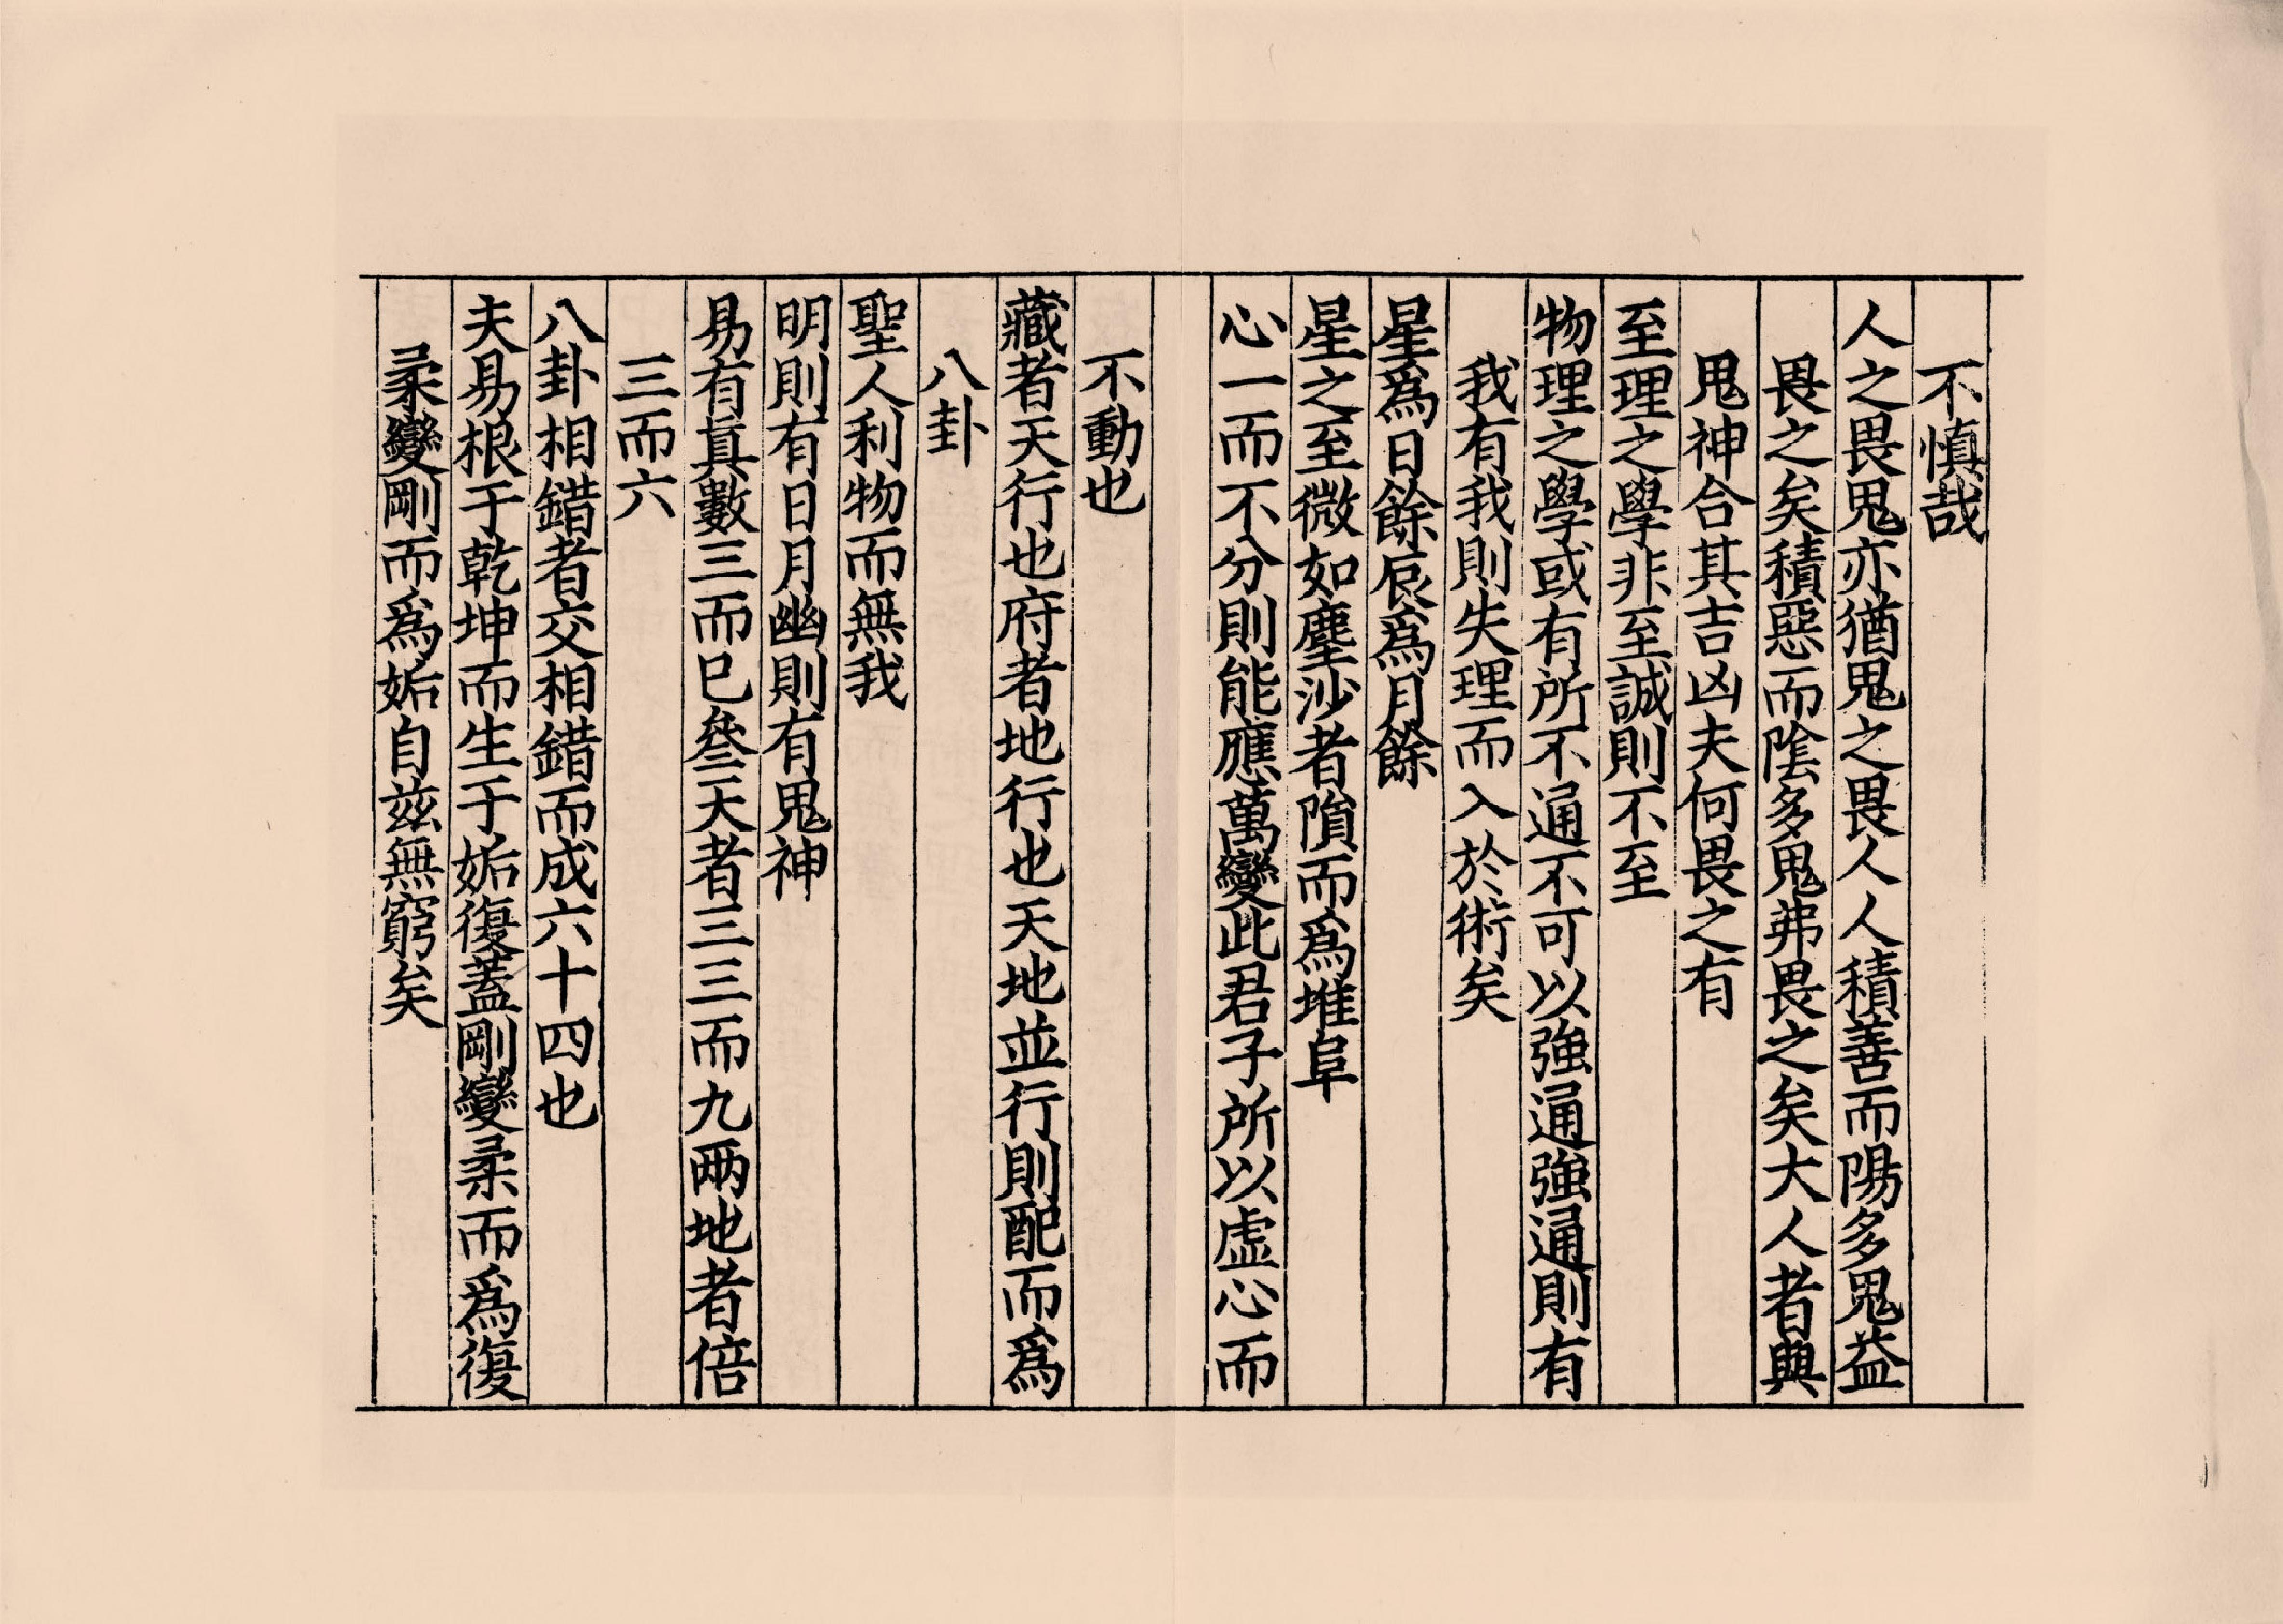 不慎哉
人之畏鬼亦猶鬼之畏人人積善而陽多鬼益
畏之矣積惡而陰多鬼弗畏之矣大人者與
鬼神合其吉凶夫何畏之有
至理之學非至誠則不至
物理之學或有所不通不可以強通強通則有
我有我則失理而入於術矣
星爲日餘辰爲月餘
星之至微如塵沙者隕而爲堆阜
心一而不分則能應萬變此君子所以虛心而
不動也
藏者天行也府者地行也天地並行則配而爲
八卦
聖人利物而無我
明則有日月幽則有鬼神
易有真數三而已叅天者三三而九兩地者倍
三而六
八卦相錯者交相錯而成六十四也
夫易根于乾坤而生于姤復蓋剛變柔而爲復
柔變剛而爲姤自茲無窮矣